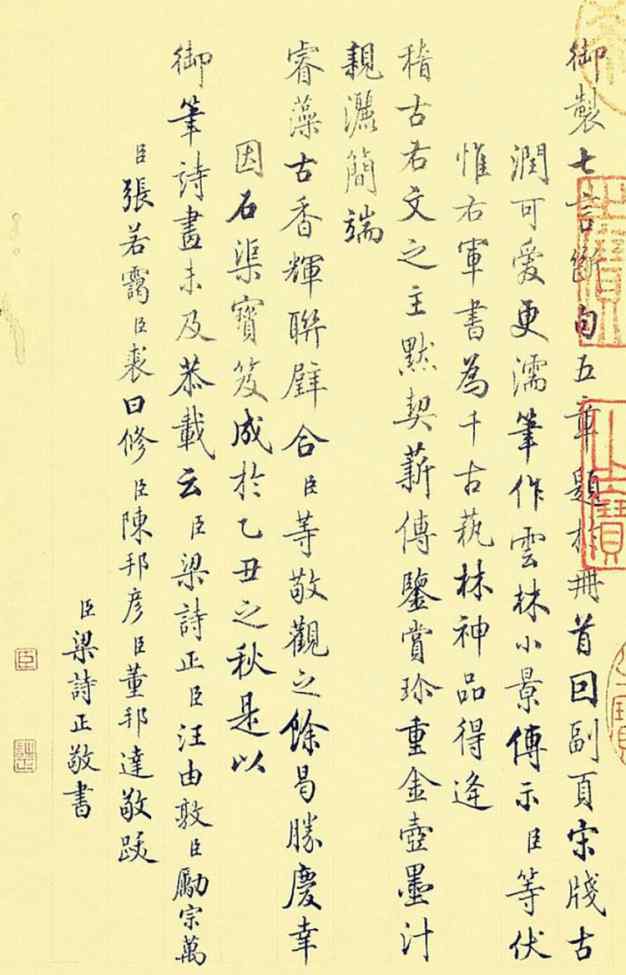 御製七言斷句五章題於冊首回副頁宋牋古
潤可愛更濡筆作雲林小景傳示臣等伏
惟右軍書為千古蓺林神品得逢
稽古右文之主默契薪傳鑒賞珍重金壺墨汁
親灑簡端
睿藻古香輝聯璧合臣等敬觀之餘曷勝慶幸
因石渠寶笈成於乙丑之秋是以
御筆詩畫未及恭載云臣梁詩正臣汪由敦臣勵宗萬
臣張若靄臣裘曰修臣陳邦彦臣董邦達敬跋
臣梁詩正敬書
臣